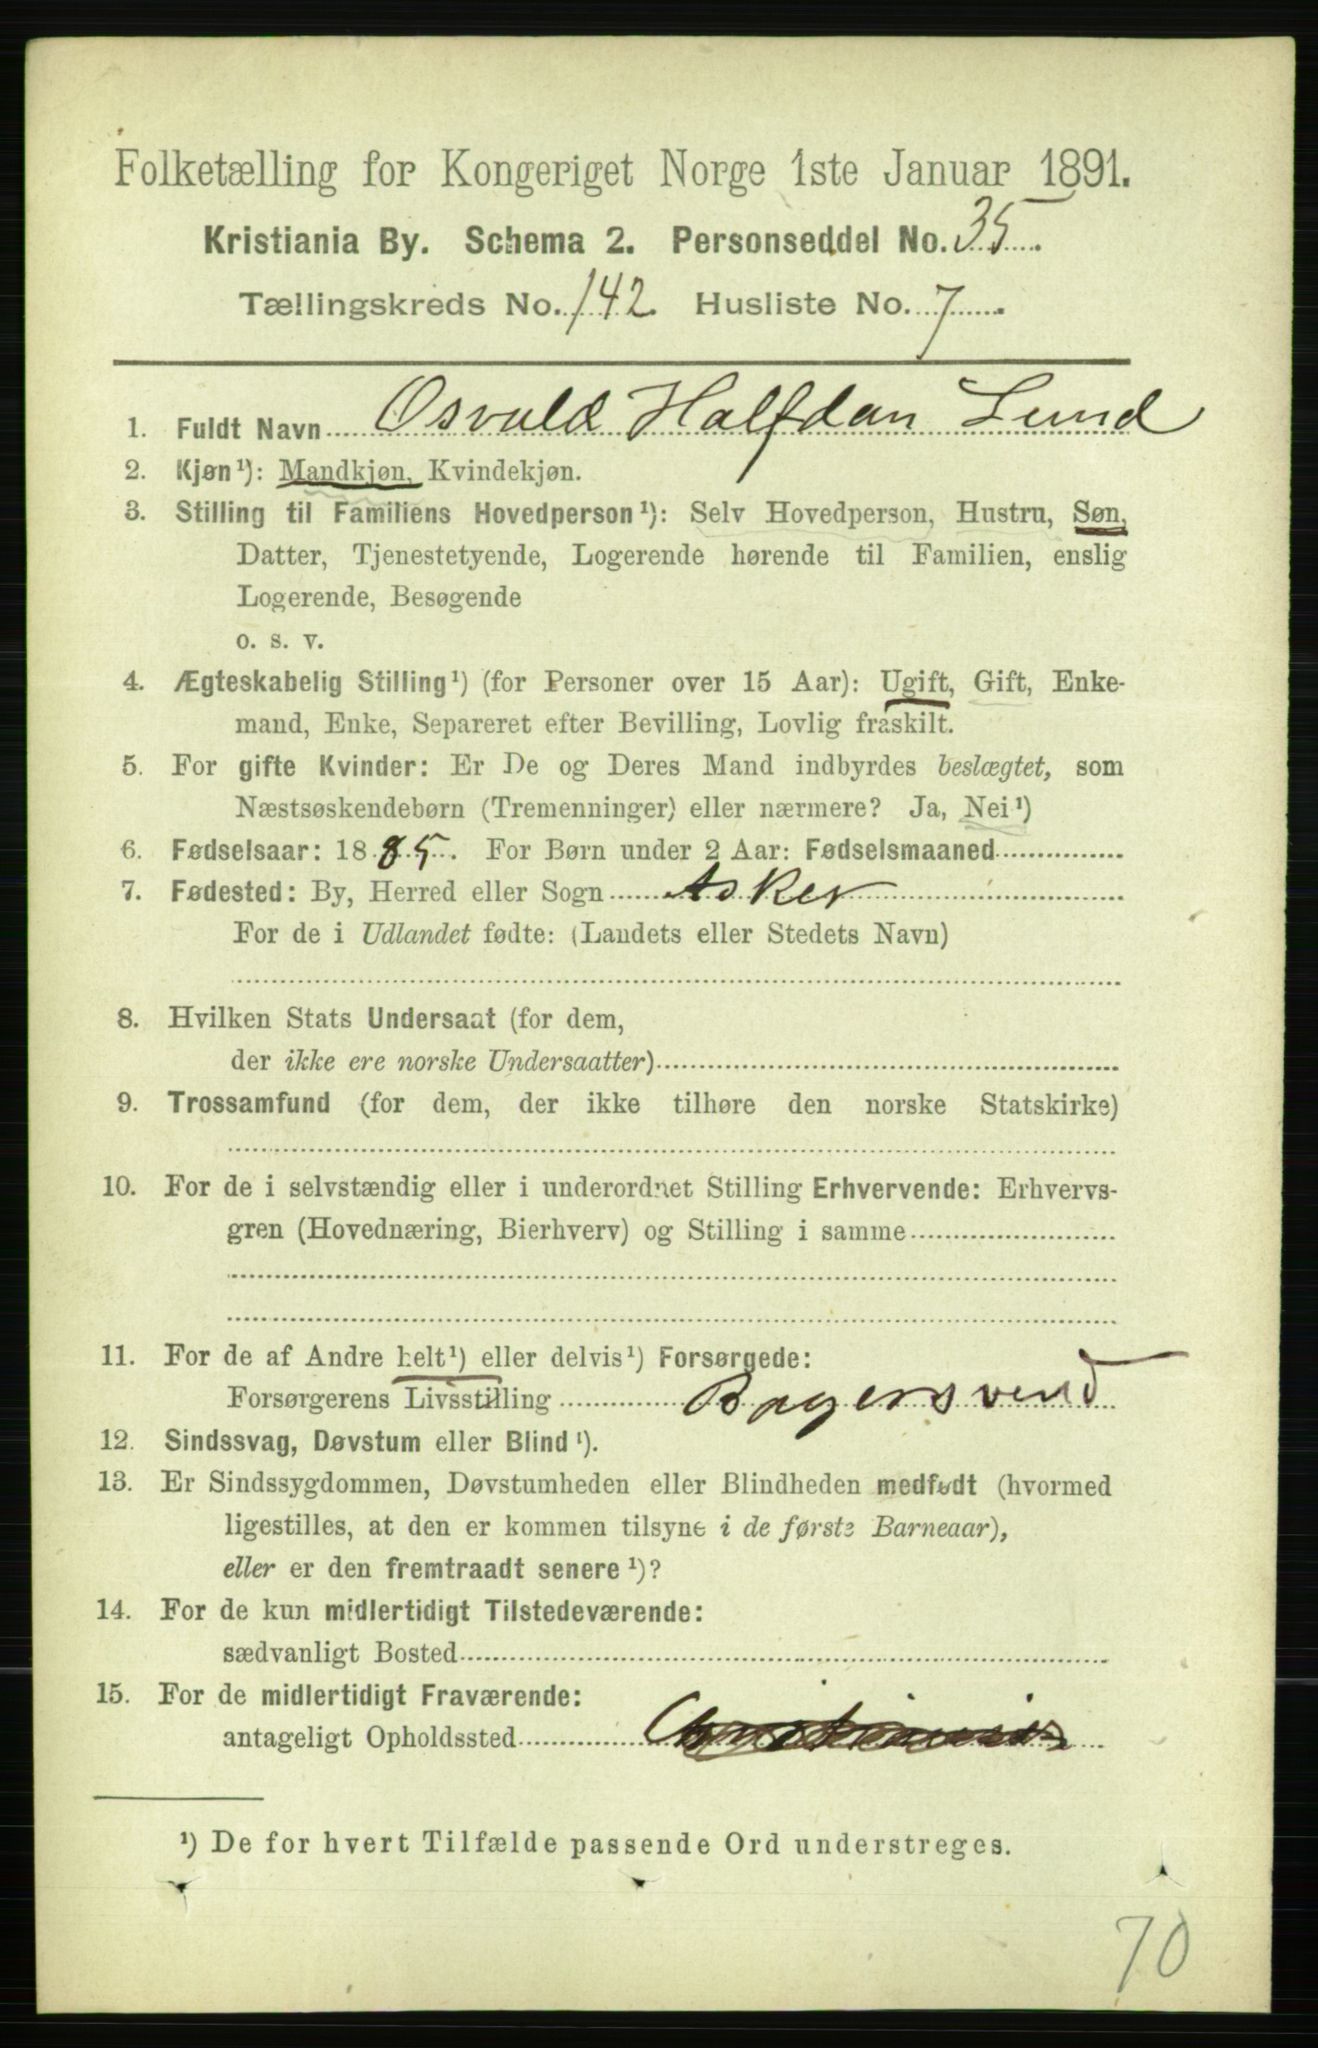 Folketælling for Kongeriget Norge 1ste Januar 1891.
Kristiania By. Schema 2. Personseddel No. 35.
Tællingskreds No. 142. Husliste No. 7
1. Fuldt Navn Osvald Halfdan Lund
2. Kjøn¹): Mandkjøn, Kvindekjøn.
3. Stilling til Familiens Hovedperson¹): Selv Hovedperson, Hustru, Søn,
Datter, Tjenestetyende, Logerende hørende til Familien, enslig
Logerende, Besøgende
o. s. v.
4. Ægteskabelig Stilling¹) (for Personer over 15 Aar): Ugift, Gift, Enke-
mand, Enke, Separeret efter Bevilling, Lovlig fraskilt.
5. For gifte Kvinder: Er De og Deres Mand indbyrdes beslægtet, som
Næstsøskendebørn (Tremenninger) eller nærmere? Ja, Nei¹)
6. Fødselsaar: 1885. For Børn under 2 Aar: Fødselsmaaned
7. Fødested: By, Herred eller Sogn Asker
For de i Udlandet fødte: (Landets eller Stedets Navn)
8. Hvilken Stats Undersaat (for dem,
der ikke ere norske Undersaatter)
9. Trossamfund (for dem, der ikke tilhøre den norske Statskirke)
10. For de i selvstændig eller i underordnet Stilling Erhvervende: Erhvervs-
gren (Hovednæring, Bierhverv) og Stilling i samme
11. For de af Andre helt¹) eller delvis¹) Forsørgede:
Forsørgerens Livsstilling Bagersvend
12. Sindssvag, Døvstum eller Blind¹).
13. Er Sindssygdommen, Døvstumheden eller Blindheden medfødt (hvormed
ligestilles, at den er kommen tilsyne i de første Barneaar),
eller er den fremtraadt senere¹)?
14. For de kun midlertidigt Tilstedeværende:
sædvanligt Bosted
15. For de midlertidigt Fraværende:
antageligt Opholdssted
¹) De for hvert Tilfælde passende Ord understreges.
70